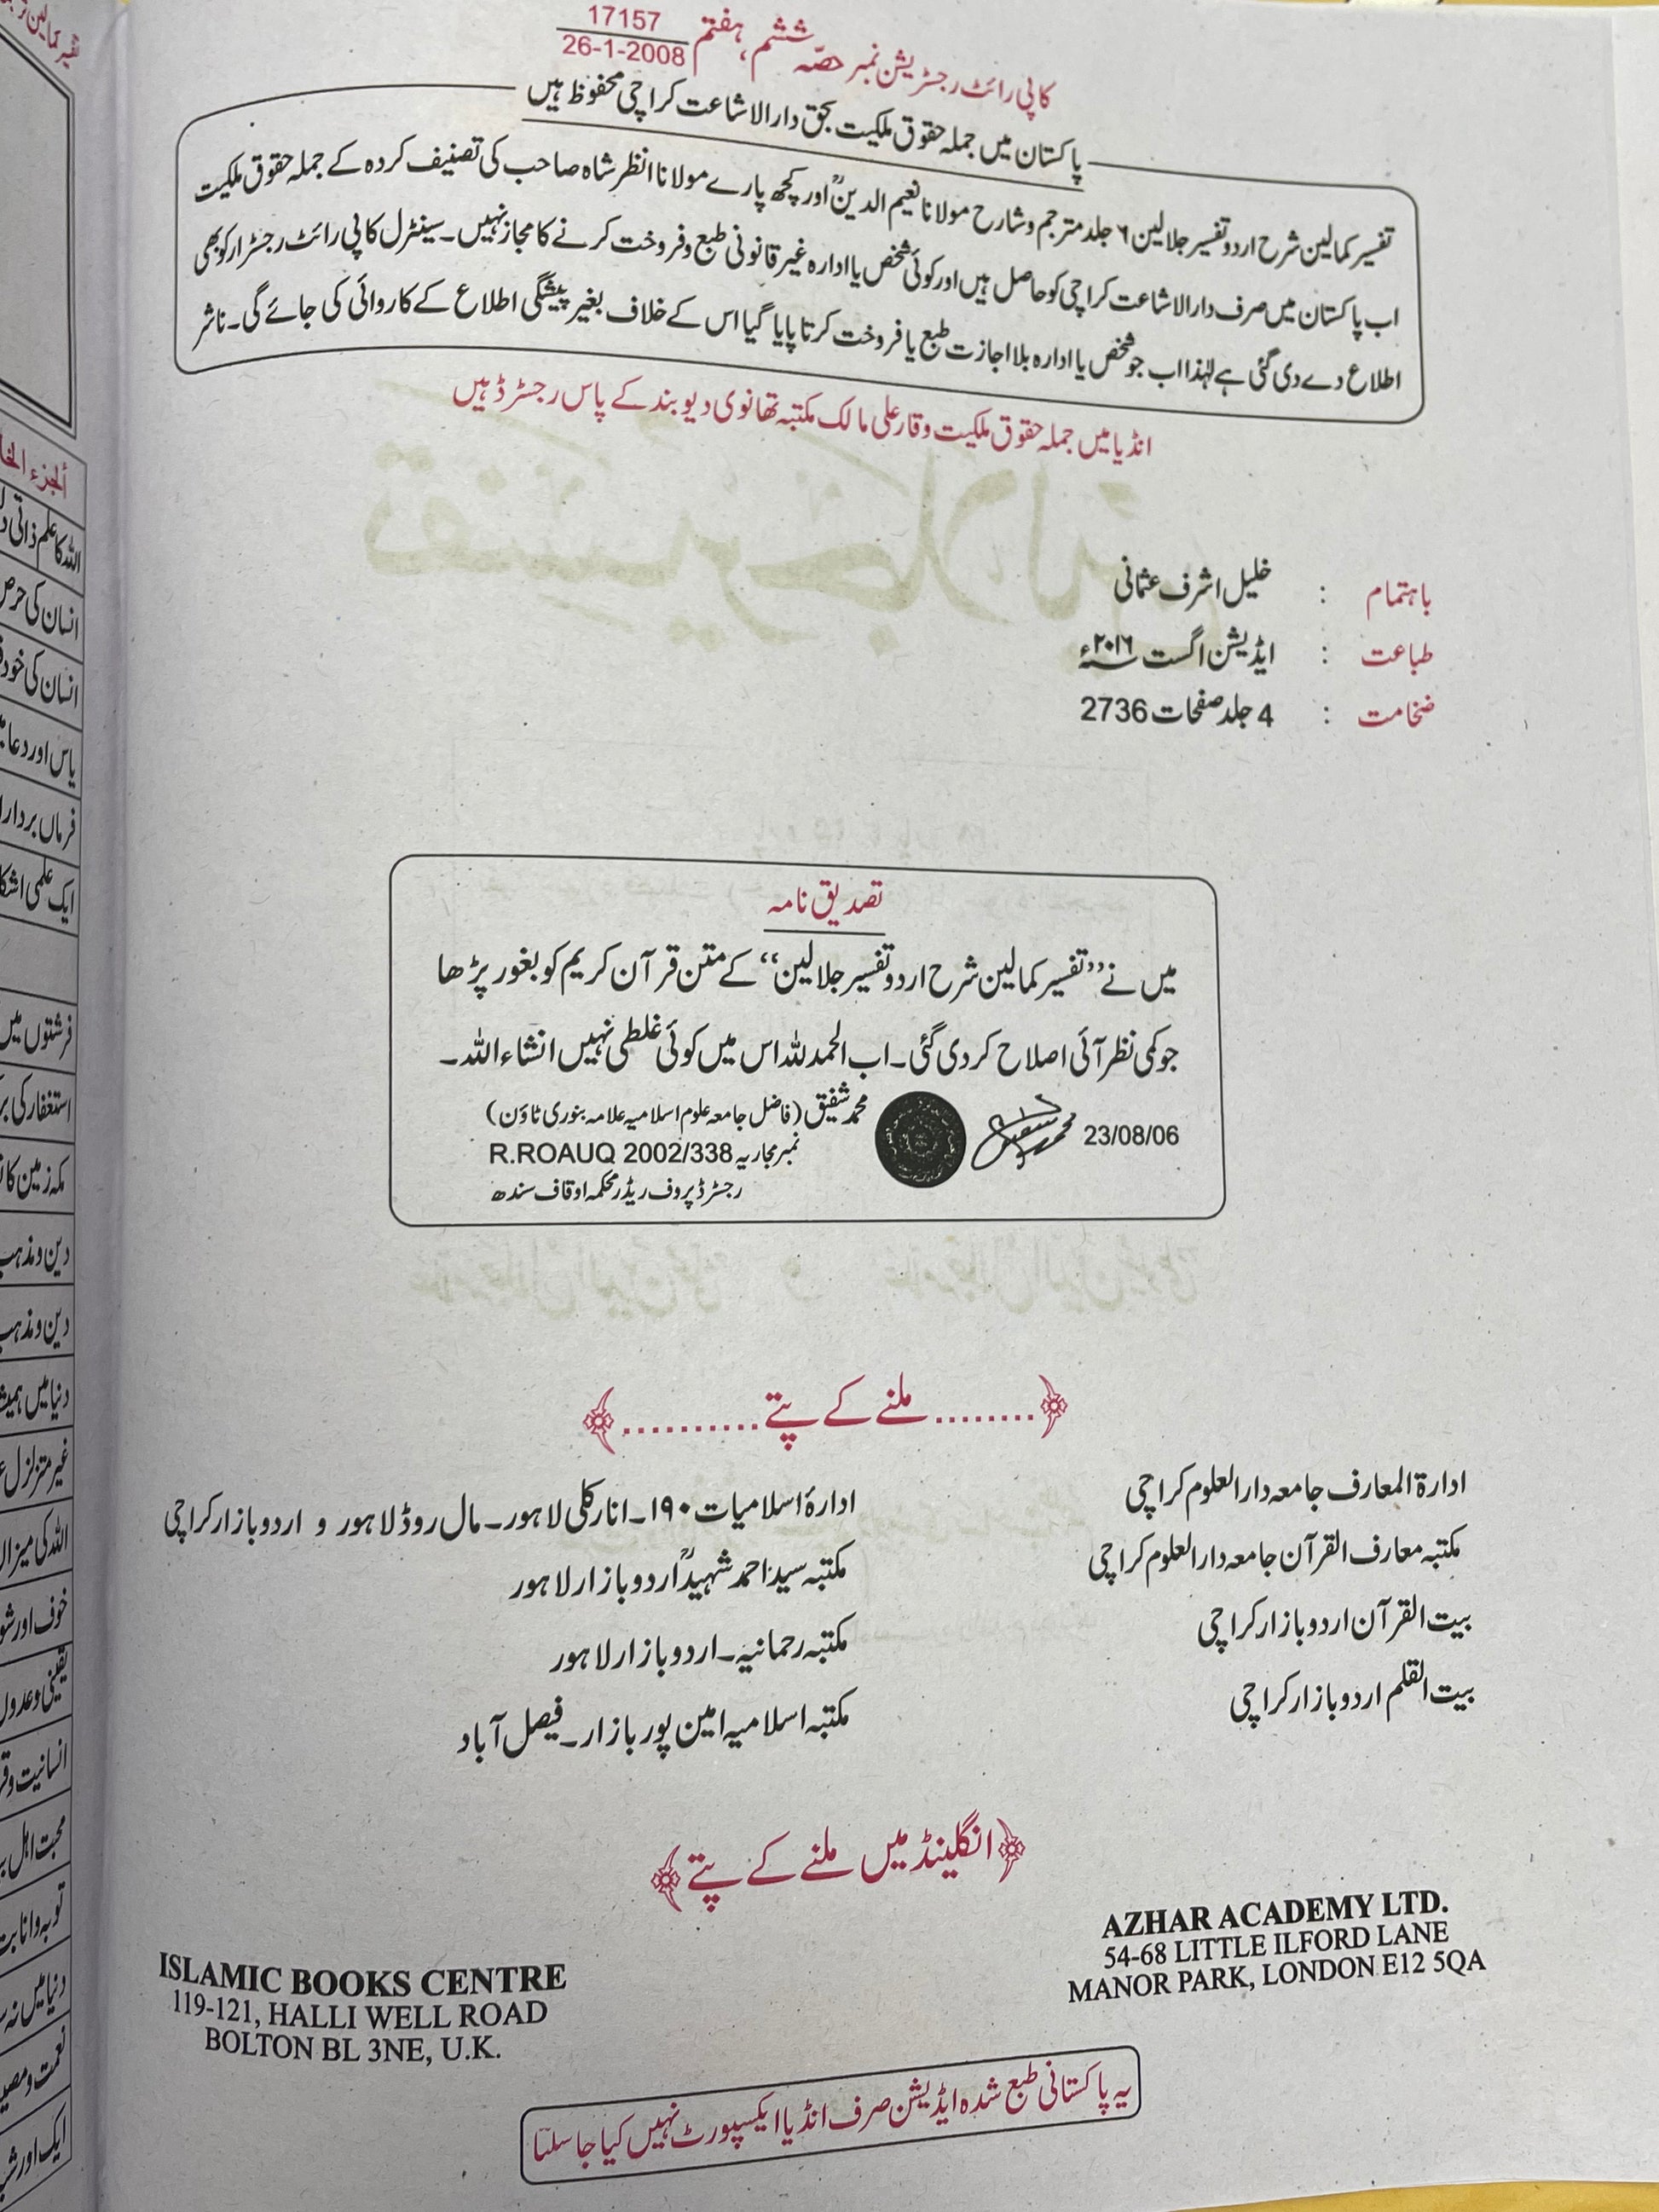 کاپی رائٹ رجسٹریشن نمبر حصّہ ششم، ہفتم 17157 / 26-1-2008
پاکستان میں جملہ حقوق ملکیت بحق دارالاشاعت کراچی محفوظ ہیں
تفسیر کمالین شرح اردو تفسیر جلالین ۶ جلد مترجم و شارح مولانا نعیم الدینؒ اور کچھ پارے مولانا انظر شاہ صاحب کی تصنیف کردہ کے جملہ حقوق ملکیت
اب پاکستان میں صرف دارالاشاعت کراچی کو حاصل ہیں اور کوئی شخص یا ادارہ غیر قانونی طبع و فروخت کرنے کا مجاز نہیں۔ سینٹرل کاپی رائٹ رجسٹرار کو بھی
اطلاع دے دی گئی ہے لہٰذا اب جو شخص یا ادارہ بلا اجازت طبع یا فروخت کرتا پایا گیا اس کے خلاف بغیر پیشگی اطلاع کے کاروائی کی جائے گی۔ ناشر
انڈیا میں جملہ حقوق ملکیت وقار علی مالک مکتبہ تھانوی دیوبند کے پاس رجسٹرڈ ہیں
باہتمام : خلیل اشرف عثمانی
طباعت : ایڈیشن اگست ۲۰۱۶ء
ضخامت : 4 جلد صفحات 2736
تصدیق نامہ
میں نے ’’تفسیر کمالین شرح اردو تفسیر جلالین‘‘ کے متن قرآن کریم کو بغور پڑھا
جو کمی نظر آئی اصلاح کردی گئی۔ اب الحمدللہ اس میں کوئی غلطی نہیں انشاءاللہ۔
23/08/06 محمد شفیق (فاضل جامعہ علوم اسلامیہ علامہ بنوری ٹاؤن)
نمبر مجاریہ R.ROAUQ 2002/338
رجسٹرڈ پروف ریڈر محکمہ اوقاف سندھ
﴿........ملنے کے پتے..........﴾
ادارۃ المعارف جامعہ دارالعلوم کراچی
مکتبہ معارف القرآن جامعہ دارالعلوم کراچی
بیت القرآن اردو بازار کراچی
بیت القلم اردو بازار کراچی
ادارۂ اسلامیات ۱۹۰۔انارکلی لاہور۔مال روڈ لاہور و اردو بازار کراچی
مکتبہ سید احمد شہیدؒ اردو بازار لاہور
مکتبہ رحمانیہ۔اردو بازار لاہور
مکتبہ اسلامیہ امین پور بازار۔فیصل آباد
﴿انگلینڈ میں ملنے کے پتے﴾
AZHAR ACADEMY LTD.
54-68 LITTLE ILFORD LANE
MANOR PARK, LONDON E12 5QA
ISLAMIC BOOKS CENTRE
119-121, HALLI WELL ROAD
BOLTON BL 3NE, U.K.
یہ پاکستانی طبع شدہ ایڈیشن صرف انڈیا ایکسپورٹ نہیں کیا جا سکتا